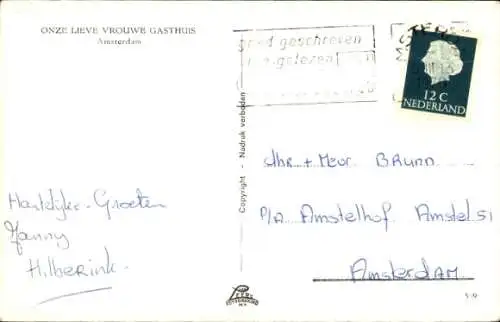 ONZE LIEVE VROUWE GASTHUIS
Amsterdam
goed geschreven
gelezen
12 C
NEDERLAND
Copyright - Nadruk verboden
Dhr + Mevr BRUNN
P/A Amstelhof. Amstel 51
Amsterdam
Hartelijke Groeten
Fanny
Hilberink.